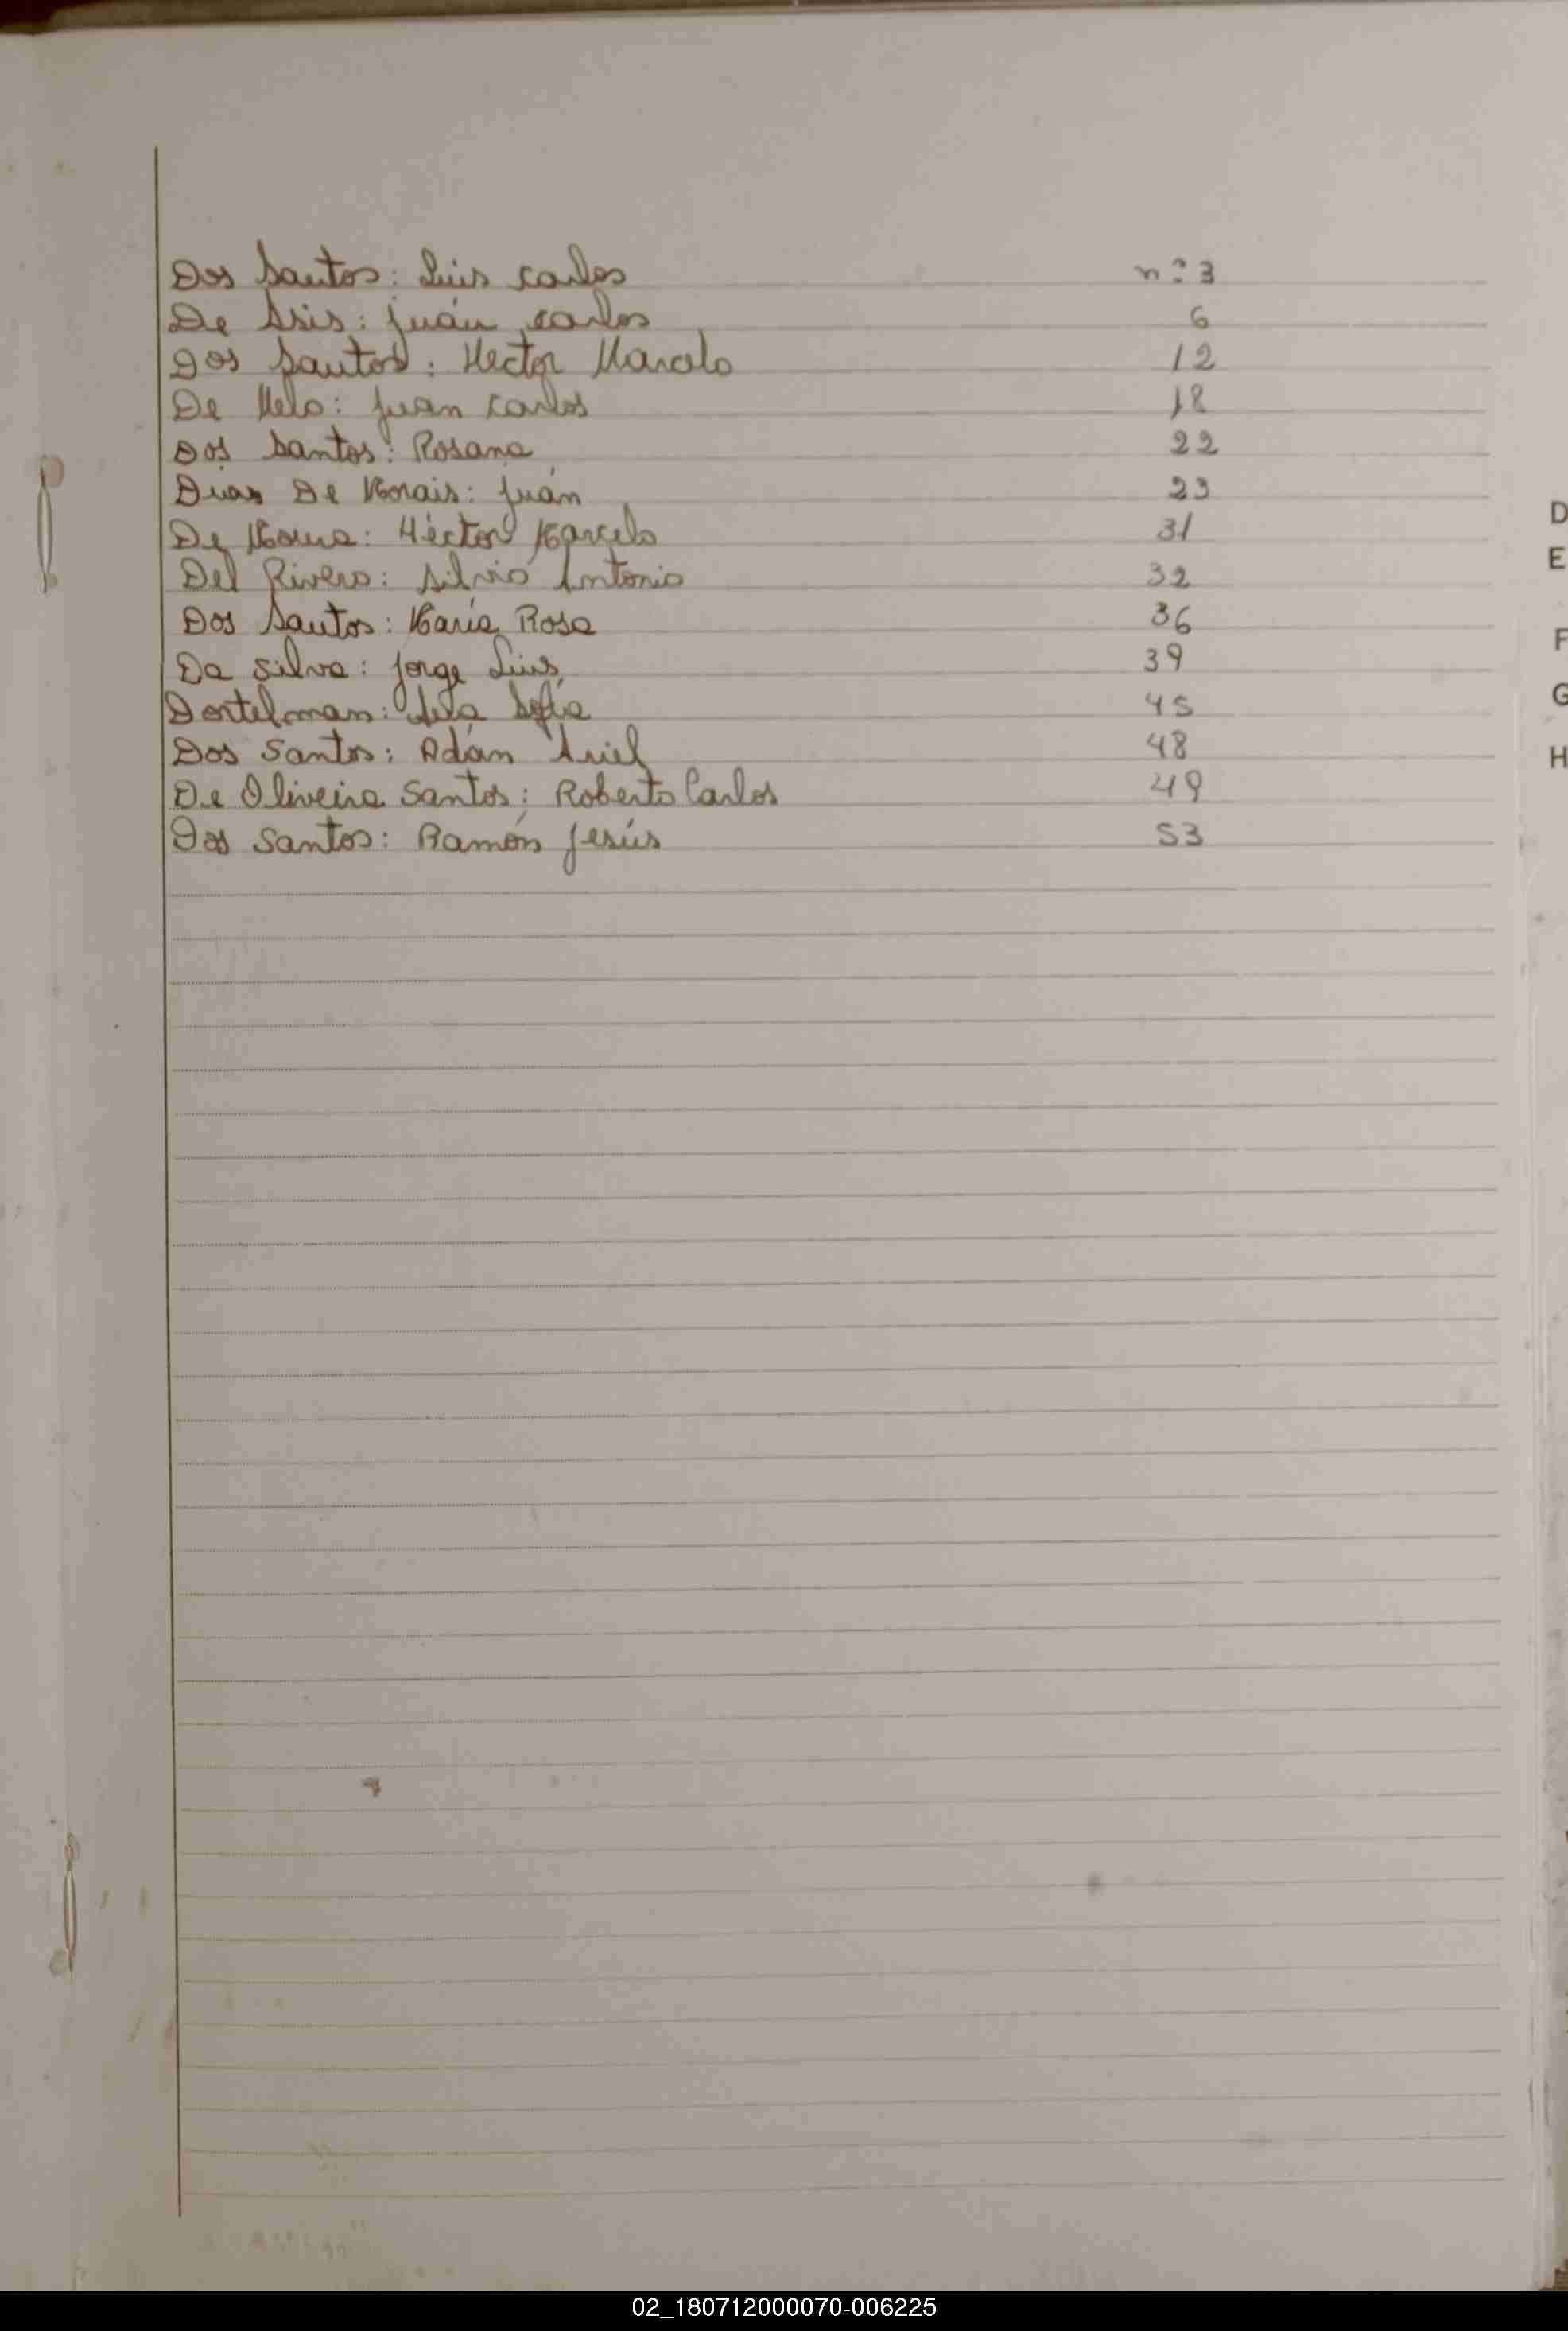 Dos Santos: Luis Carlos n: 3
De Asis: Juán Carlos 6
Dos Santos: Hector Marcelo 12
De Melo: Juan Carlos 18
Dos Santos: Rosana 22
Duas De Morais: Juán 23
De Moura: Héctor Marcelo 31
Del Rivero: Silvio Antonio 32
Dos Santos: María Rosa 36
Da Silva: Jorge Luis, 39
Dortelman: Sofía 45
Dos Santos: Adán Ariel 48
De Oliveira Santos: Roberto Carlos 49
Dos Santos: Ramón Jesús 53
D
E
F
G
H
02_180712000070-006225